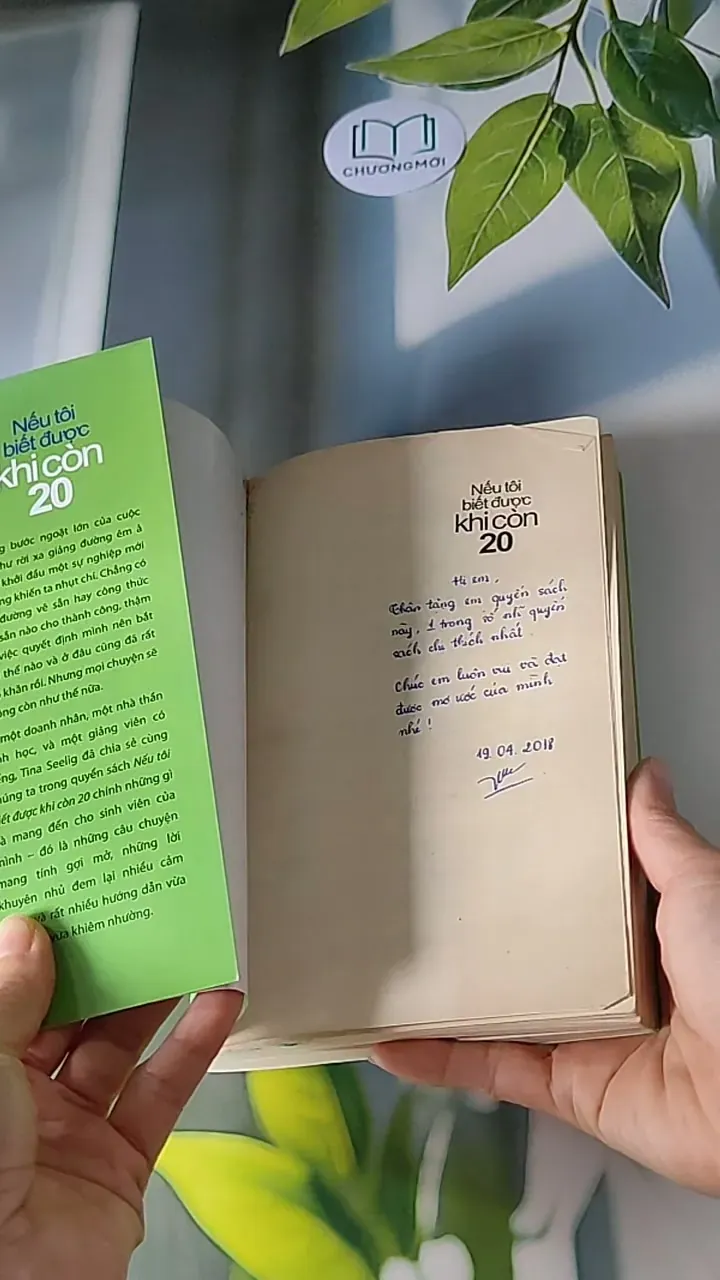 CHƯƠNG MỚI
Nếu tôi
biết được
khi còn
20
bước ngoặt lớn của cuộc
như rời xa giảng đường êm ả
khởi đầu một sự nghiệp mới
khiến ta nhụt chí. Chẳng có
đường vẽ sẵn hay công thức
sẵn nào cho thành công, thậm
việc quyết định mình nên bắt
thế nào và ở đâu cũng đã rất
khăn rồi. Nhưng mọi chuyện sẽ
còn như thế nữa.
một doanh nhân, một nhà thần
học, và một giảng viên có
Tina Seelig đã chia sẻ cùng
ta trong quyển sách Nếu tôi
biết được khi còn 20 chính những gì
mang đến cho sinh viên của
mình – đó là những câu chuyện
mang tính gợi mở, những lời
khuyên nhủ đem lại nhiều cảm
và rất nhiều hướng dẫn vừa
vừa khiêm nhường.
Nếu tôi
biết được
khi còn
20
Hi em,
Thân tặng em quyển sách
này, 1 trong số những quyển
sách chị thích nhất.
Chúc em luôn vui và đạt
được mơ ước của mình
nhé!
19.04.2018